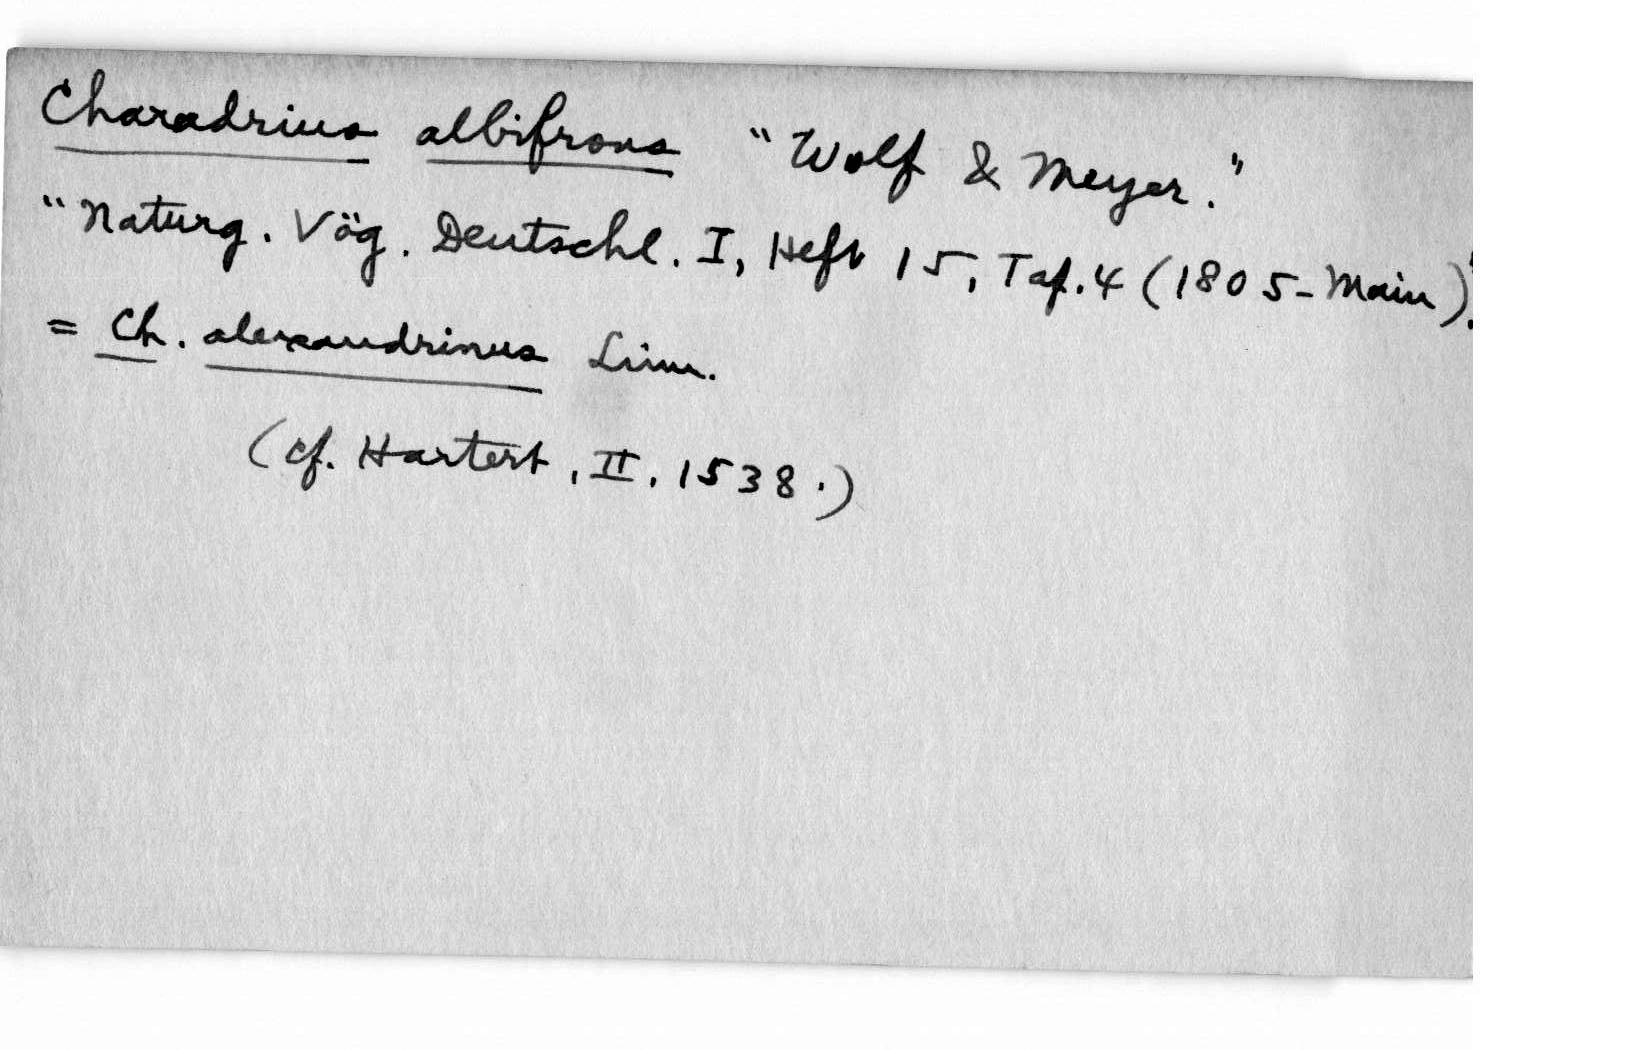 Charadrius albifrons "Wolf & Meyer."
"Naturg. Vög. Deutschl. I, Heft 15, Taf. 4 (1805 - Main)".
= Ch. alexandrinus Linn.
(cf. Hartert, II, 1538.)